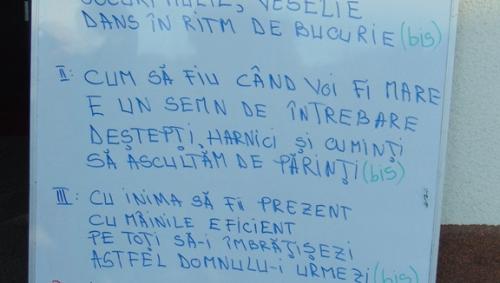 VESELIE
DANS ÎN RITM DE BUCURIE (bis)
II: CUM SĂ FIU CÂND VOI FI MARE
E UN SEMN DE ÎNTREBARE
DEȘTEPȚI, HARNICI ȘI CUMINȚI
SĂ ASCULTĂM DE PĂRINȚI (bis)
III: CU INIMA SĂ FII PREZENT
CU MÂINILE EFICIENT
PE TOȚI SĂ-I ÎMBRĂȚIȘEZI
ASTFEL DOMNULU-I URMEZI (bis)